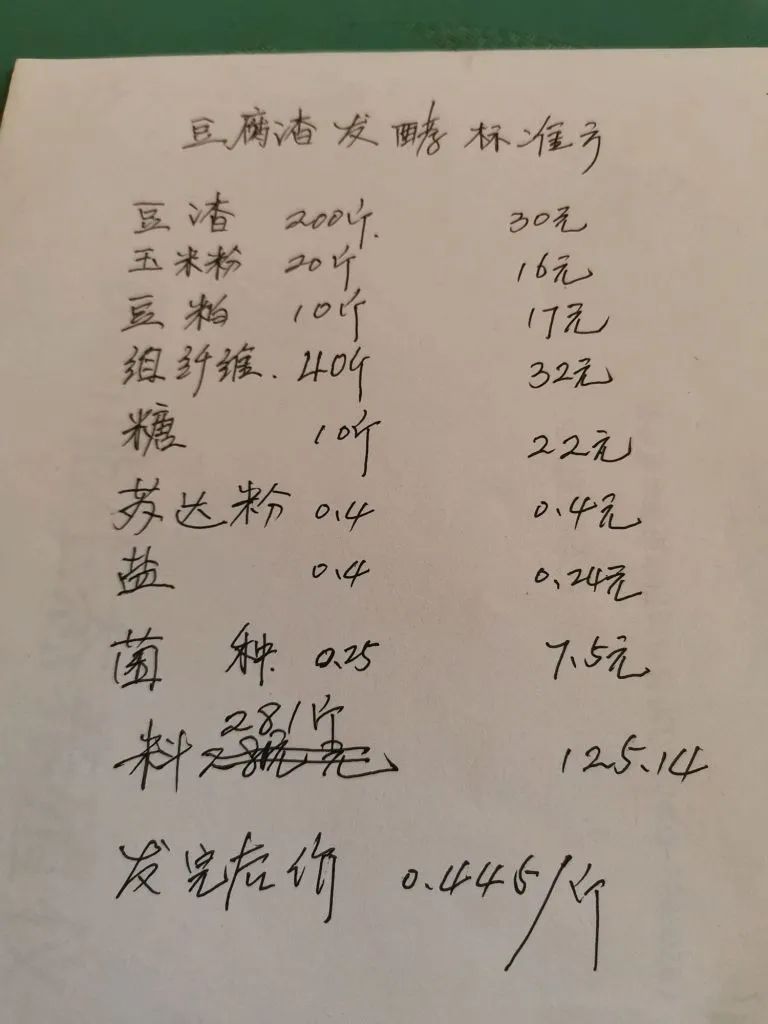 豆腐渣发酵标准方
豆渣 200斤. 30元
玉米粉 20斤 16元
豆粕 10斤 17元
纤维. 40斤 32元
糖 10斤 22元
苏达粉 0.4 0.4元
盐 0.4 0.24元
菌种. 0.25 7.5元
料 281斤 125.14
发完后价 0.445/斤